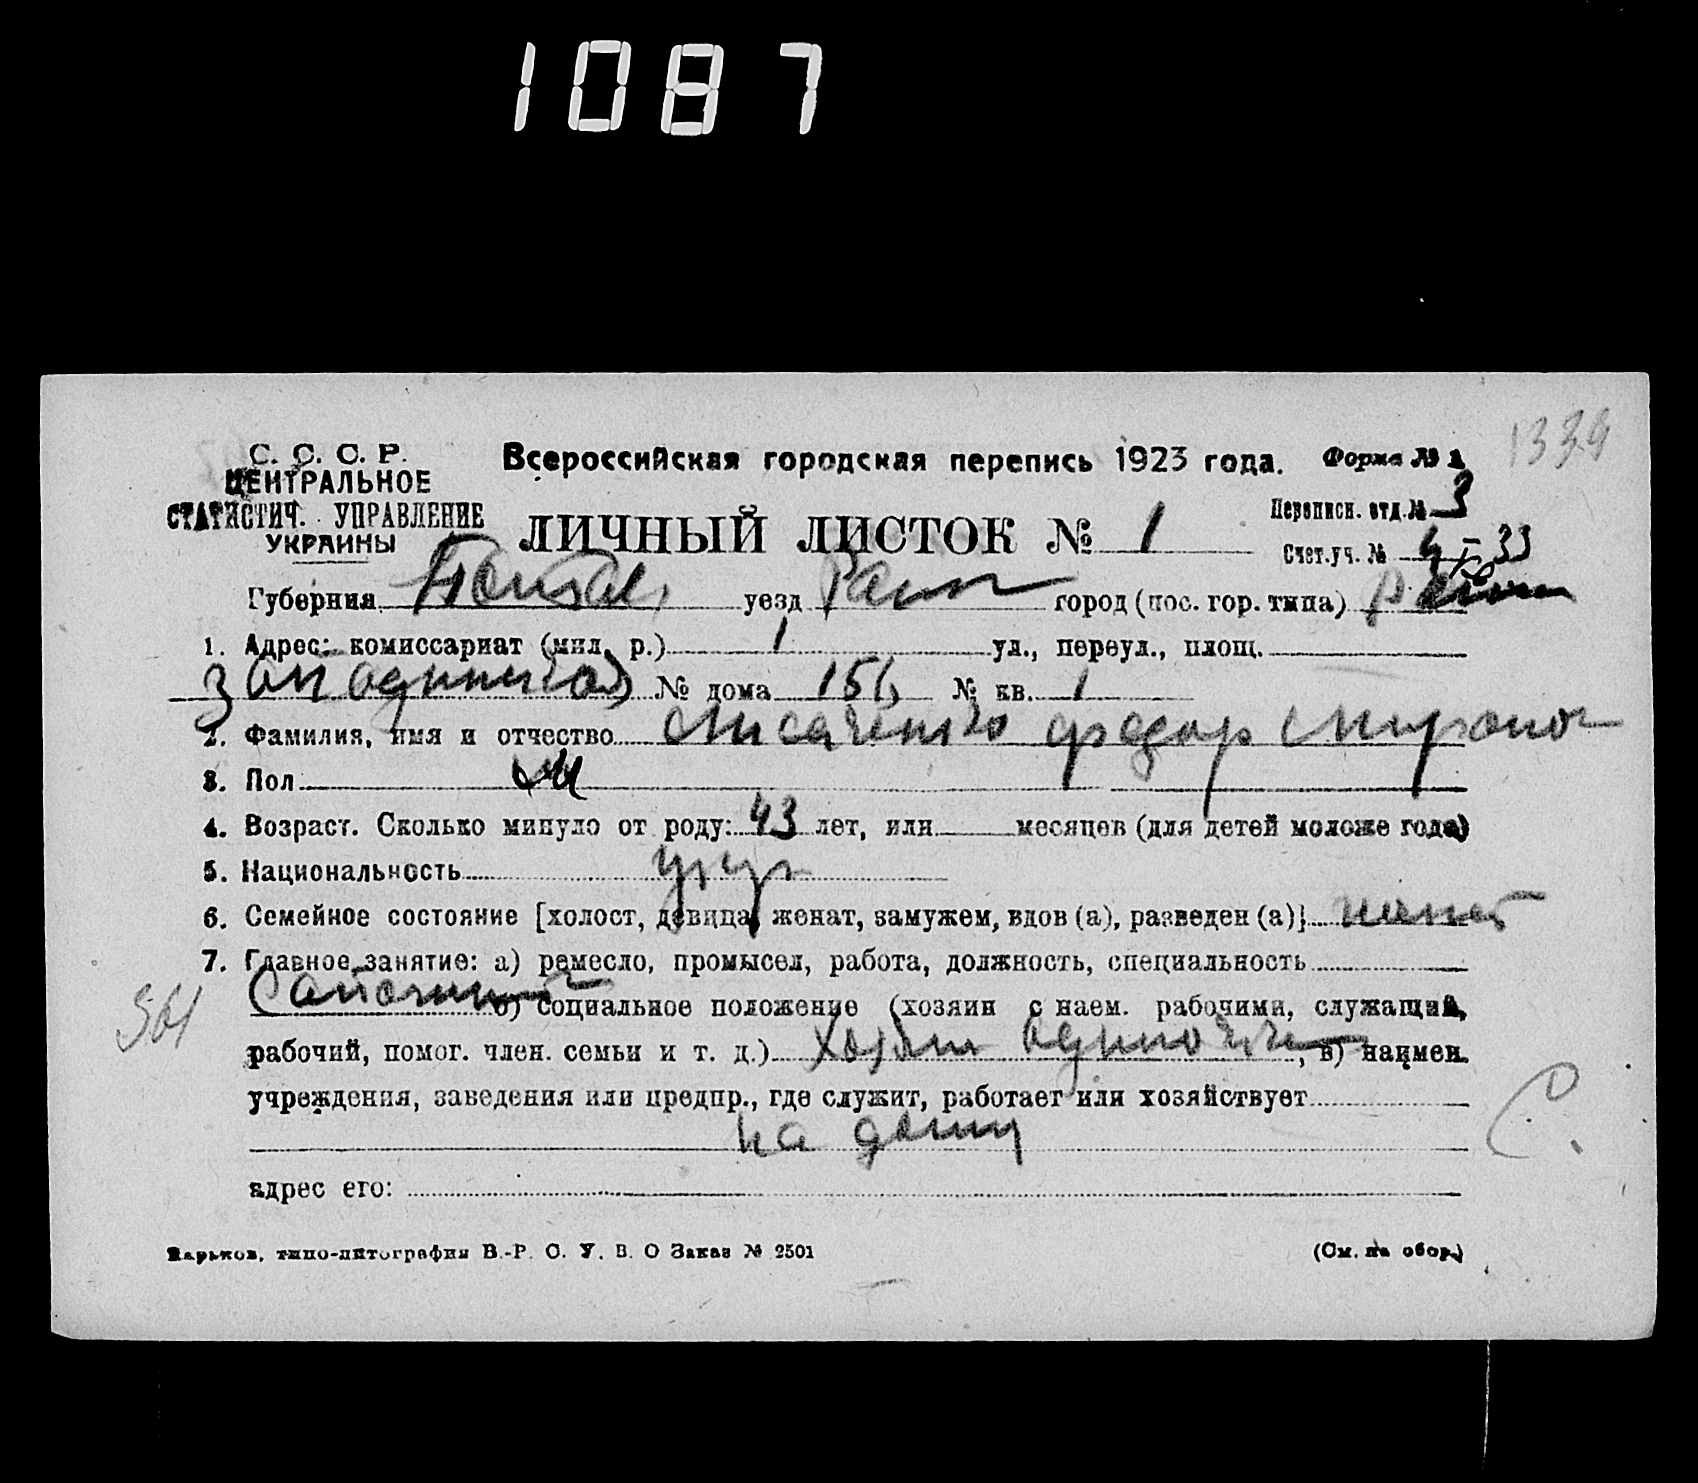 1087
1339
С. С. С. Р.
ЦЕНТРАЛЬНОЕ
СТАТИСТИЧ. УПРАВЛЕНИЕ
УКРАИНЫ
Всероссийская городская перепись 1923 года.
Форма № 1
ЛИЧНЫЙ ЛИСТОК № 1
Переписн. отд. № 3
Счет. уч. № 33
Губерния уезд город (пос. гор. типа)
1. Адрес: комиссариат (мил. р.) 1 ул., переул., площ.
№ дома 156 № кв. 1
2. Фамилия, имя и отчество Лисаченко Федор Миронов
3. Пол М
4. Возраст. Сколько минуло от роду: 43 лет, или месяцев (для детей моложе года)
5. Национальность укр
6. Семейное состояние [холост, девица, женат, замужем, вдов (а), разведен (а)] женат
7. Главное занятие: а) ремесло, промысел, работа, должность, специальность
Сапожник б) социальное положение (хозяин с наем. рабочими, служащий,
561
рабочий, помог. член. семьи и т. д.) хозяин одиночка, в) наимен.
учреждения, заведения или предпр., где служит, работает или хозяйствует
на дому
С.
адрес его:
Харьков, типо-литография В.-Р. С. У. В. О Заказ № 2501
(См. на обор.)